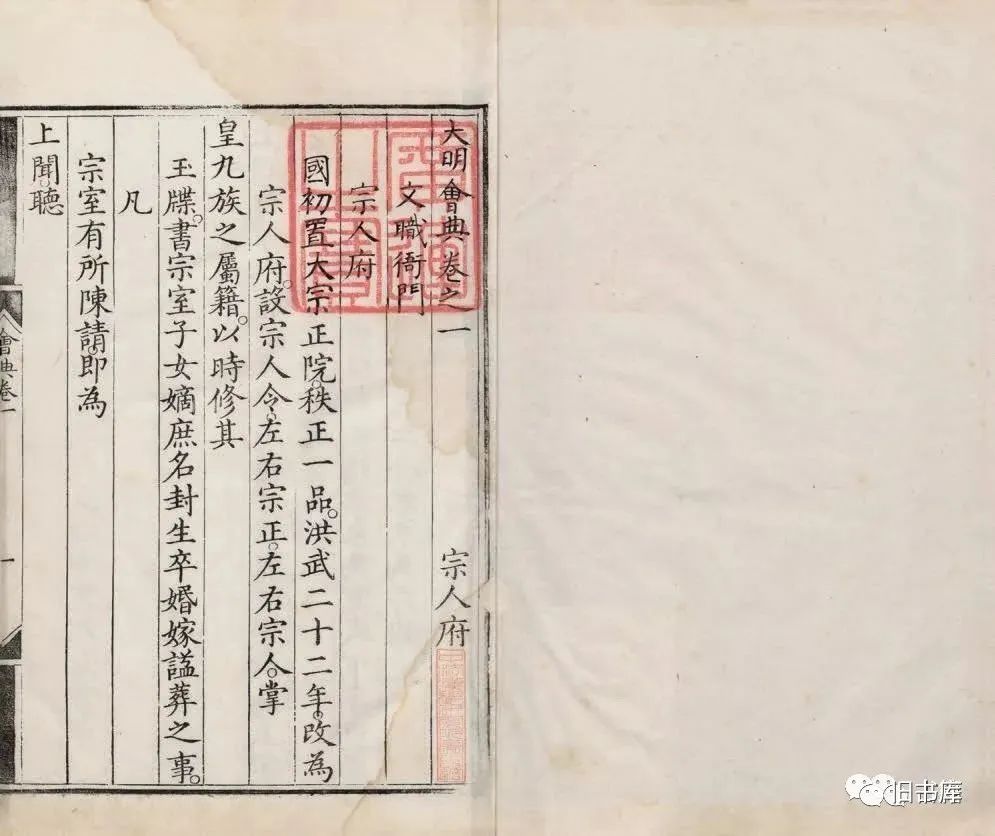 大明會典卷之一 宗人府
文職衙門
宗人府
國初置大宗正院。秩正一品。洪武二十二年。改為
宗人府。設宗人令。左右宗正。左右宗人。掌
皇九族之屬籍。以時修其
玉牒。書宗室子女嫡庶名封生卒婚嫁謚葬之事。
凡
宗室有所陳請。即為
上聞。聽
會典卷一
一
旧书库